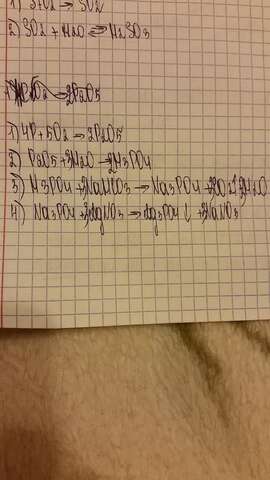 1) S+O2 → SO2
2) SO2 + H2O ⇌ H2SO3
→ 2P2O5
1) 4P + 5O2 → 2P2O5
2) P2O5 + 3H2O → 2H3PO4
3) H3PO4 + 3NaHCO3 → Na3PO4 + 3CO2↑ + 3H2O
4) Na3PO4 + 3AgNO3 → Ag3PO4 ↓ + 3NaNO3